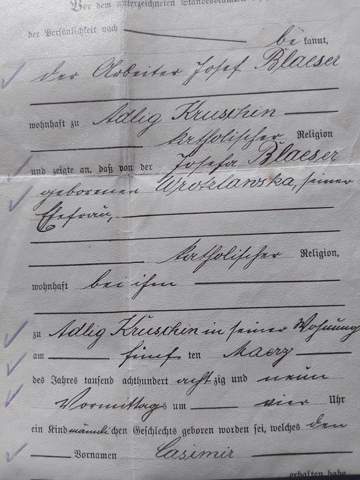 Vor dem unterzeichneten Standesbeamten
der Persönlichkeit nach be kannt,
der Arbeiter Josef Blaeser
wohnhaft zu Adlig Kruschin
katholischer Religion
und zeigte an, daß von der Josefa Blaeser
geborenen Wrotzlawska, seiner
Ehefrau,
katholischer Religion,
wohnhaft bei ihm
zu Adlig Kruschin in seiner Wohnung
am fünf ten Maerz
des Jahres tausend achthundert acht zig und neun
Vormittags um vier Uhr
ein Kind männlichen Geschlechts geboren worden sei, welches den
Vornamen Casimir
erhalten habe